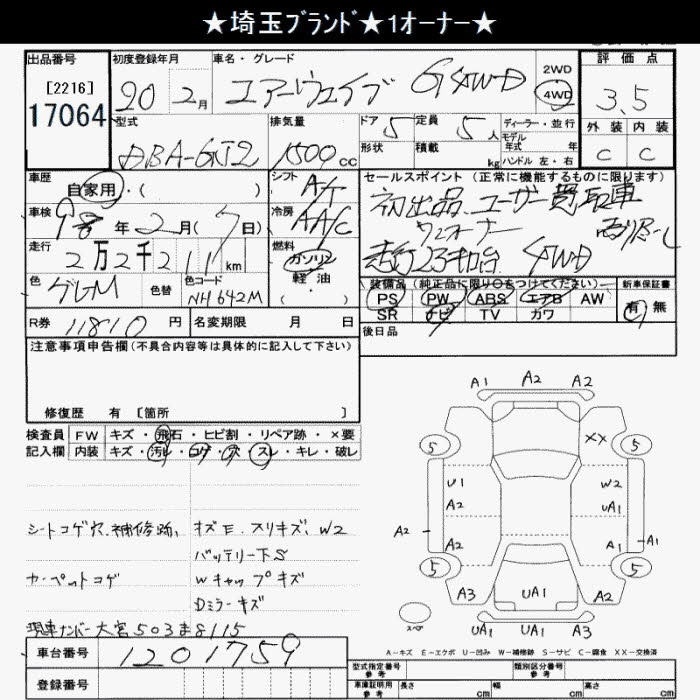 ★埼玉ﾌﾞﾗﾝﾄﾞ★1オーナー★
出品番号 初度登録年月 車名・グレード 評価点
[2216]
17064
20 2月 エアーウェイブ G 4WD 2WD 4WD 3.5
型式 排気量 ドア 定員 ディーラー・並行 外装 内装
DBA-GJ2 1500cc 5 5人 モデル年式 年 C C
形状 積載 kg ハンドル 左・右
車歴 自家用・( ) シフト A/T セールスポイント (正常に機能するものに限ります)
車検 年2月(7日) 冷房 AAC 初出品、ユーザー買取車
ワンオーナー
走行 2万2千211km 燃料 ガソリン 軽油・( ) 走行2.3キロ台 4WD
色 グレM 色替 色コード NH642M
装備品 (純正品に限り○をつけてください) 新車保証書
PS PW ABS エアB AW 有 無
SR ナビ TV カワ
R券 11810円 名変期限 月 日 後日品
注意事項申告欄(不具合内容等は具体的に記入して下さい)
修復歴 有 [箇所 ]
検査員 FW キズ・飛石・ヒビ割・リペア跡・×要
記入欄 内装 キズ・汚レ・コゲ・穴・スレ・キレ・破レ
シートコゲ穴、補修跡、 キズE、スリキズ、W2
バッテリー下S
カーペットコゲ Wキャップキズ
Dミラーキズ
現車ナンバー大宮503ま8115
A1 A2 A2
5 XX 5
U1 W2
A2
A2 A2 A1 A1
5 5
A3 UA1 UA1 A2
スペア UA1 UA1 A3
A-キズ E-エクボ U-凹み W-補修跡 S-サビ C-腐食 XX-交換済
車台番号 1201759
登録番号
型式指定番号 参考 類別区分番号 参考
車庫証明用 参考 長さ cm 幅 cm 高さ cm